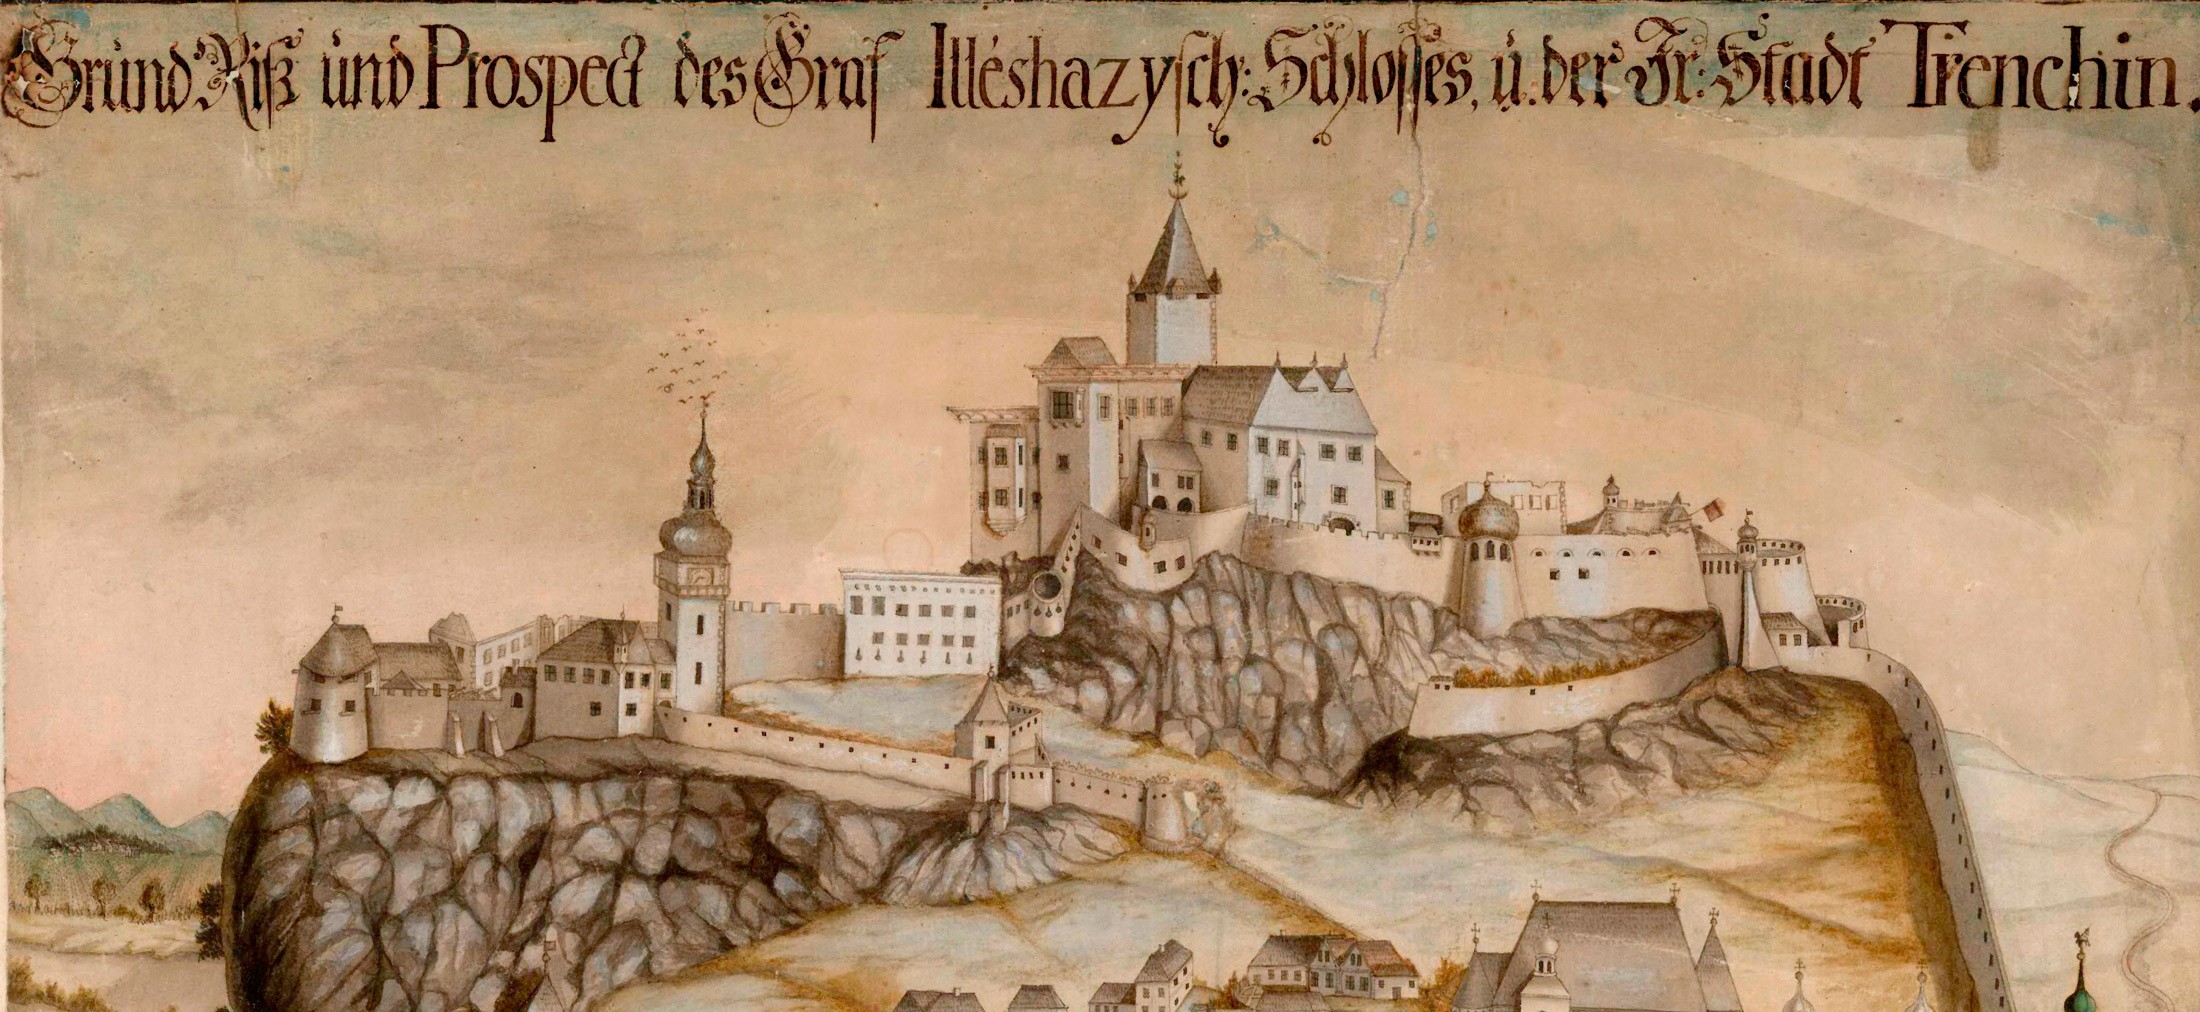 Grund Riß und Prospect des Graf Illéshazysch: Schlosses, u. der Fr: Stadt Trenchin.